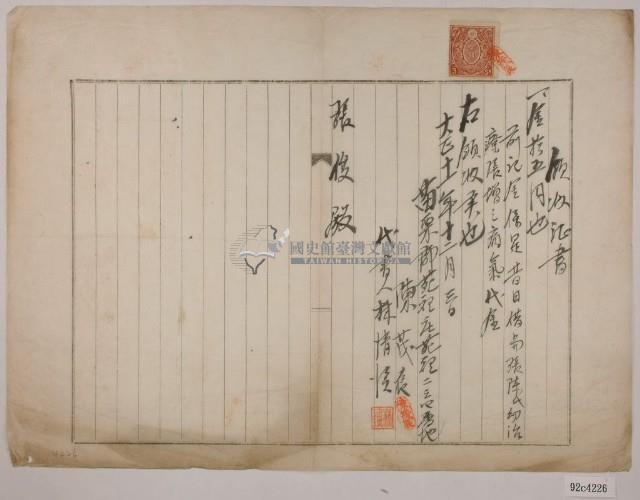 領收証書
一金拾五円也
前記金係是昔日借與張陳氏幼治
療張增之病氣代金
右領收候也
大正十一年十二月三日
苗栗郡苑裡庄苑裡二三〇番地
陳茂良
代書人林清溪
張俊殿
國史館臺灣文獻館
TAIWAN HISTORICA
92c4226